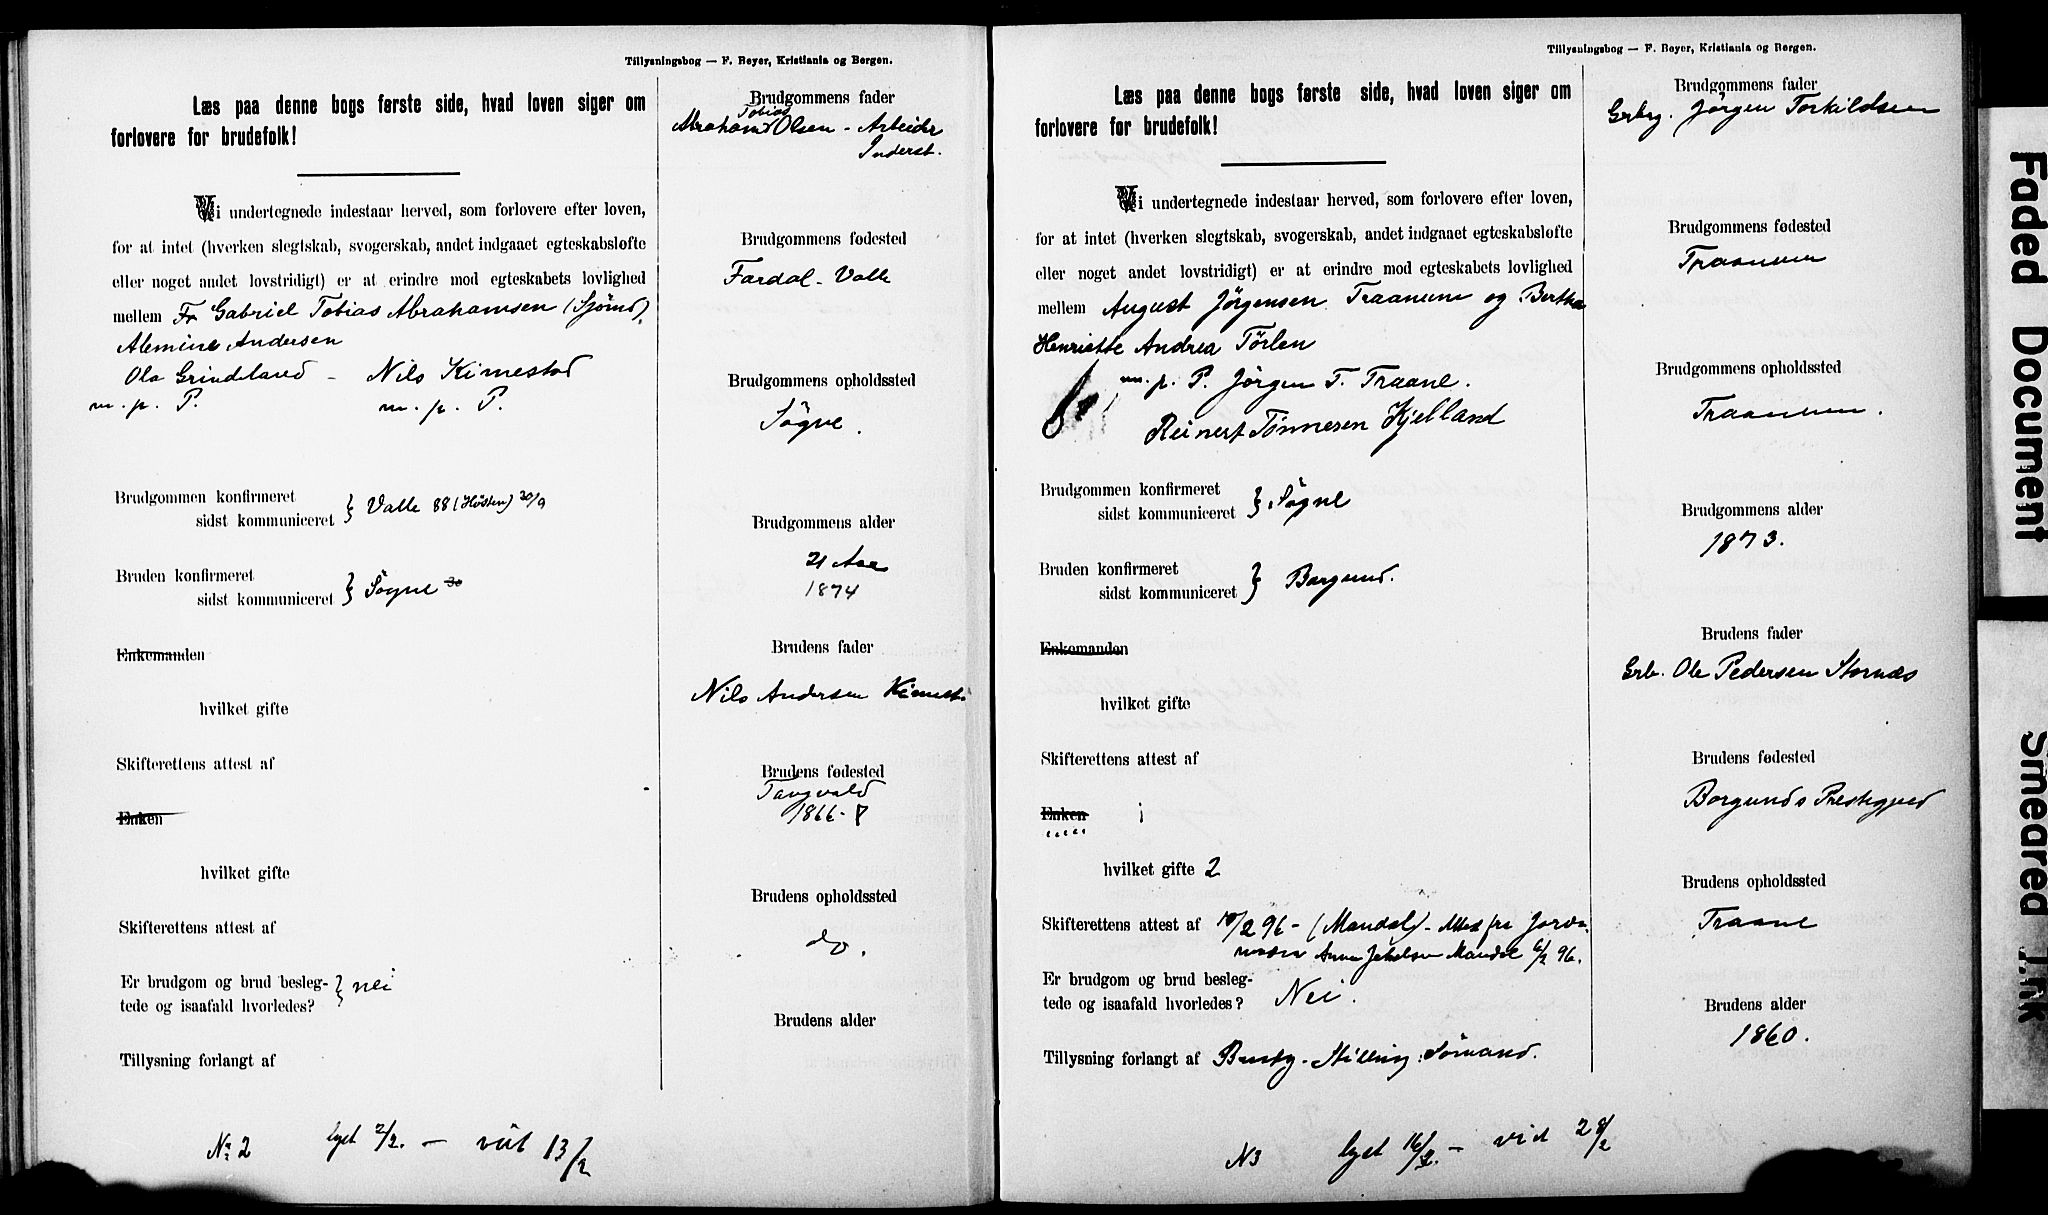 Tillysningsbog — F. Beyer, Kristiania og Bergen.
Læs paa denne bogs første side, hvad loven siger om
forlovere for brudefolk!
Vi undertegnede indestaar herved, som forlovere efter loven,
for at intet (hverken slegtskab, svogerskab, andet indgaaet egteskabsløfte
eller noget andet lovstridigt) er at erindre mod egteskabets lovlighed
mellem Fr Gabriel Tobias Abrahamsen (Sjømd)
Alemine Andersen
Ola Grindland - Nils Kimestad
m. p. P. m. p. P.
Brudgommen konfirmeret
sidst kommuniceret } Valle 88 (Høsten) 30/9
Bruden konfirmeret
sidst kommuniceret } Søgne 30
Enkemanden
hvilket gifte
Skifterettens attest af
Enken
hvilket gifte
Skifterettens attest af
Er brudgom og brud besleg-
tede og isaafald hvorledes? } nei
Tillysning forlangt af
No 2 lyst 2/2. — viet 13/2
Brudgommens fader
Tobias
Abraham Olsen - Arbeider
Inderst.
Brudgommens fødested
Fardal - Valle
Brudgommens opholdssted
Søgne.
Brudgommens alder
21 Aar
1874
Brudens fader
Nils Andersen Kimest.
Brudens fødested
Tangvald
1866 -
Brudens opholdssted
do.
Brudens alder
Tillysningsbog — F. Beyer, Kristiania og Bergen.
Læs paa denne bogs første side, hvad loven siger om
forlovere for brudefolk!
Vi undertegnede indestaar herved, som forlovere efter loven,
for at intet (hverken slegtskab, svogerskab, andet indgaaet egteskabsløfte
eller noget andet lovstridigt) er at erindre mod egteskabets lovlighed
mellem August Jørgensen Traanum og Bertha
Henriette Andrea Tørlen
m. p. P. Jørgen T. Traane.
Reinert Tønnesen Kjelland
Brudgommen konfirmeret
sidst kommuniceret } Søgne
Bruden konfirmeret
sidst kommuniceret } Borgund.
Enkemanden
hvilket gifte
Skifterettens attest af
Enken
hvilket gifte 2
Skifterettens attest af 10/2 96 - (Mandal) - Attest fra Jorde-
moder Anne Mandal 6/2 96.
Er brudgom og brud besleg-
tede og isaafald hvorledes? Nei.
Tillysning forlangt af
N 3 lyst 16/2. — vid 28/2
Brudgommens fader
Grbrg. Jørgen Torkildsen
Brudgommens fødested
Traanum
Brudgommens opholdssted
Traanum.
Brudgommens alder
1873.
Brudens fader
Grb. Ole Pedersen Stornæs
Brudens fødested
Borgunds Prestegjeld
Brudens opholdssted
Traane
Brudens alder
1860.
Faded Document
Smeared Ink